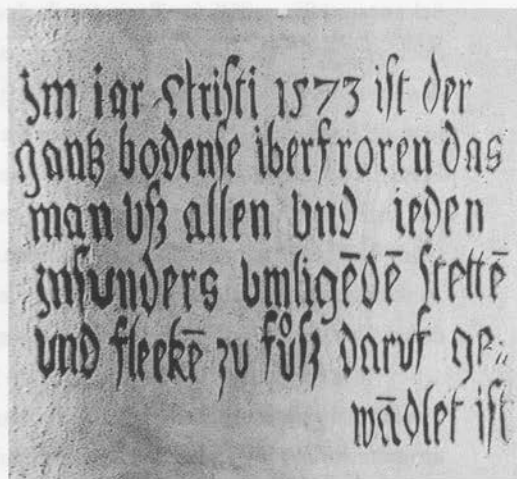 Im iar Christi 1573 ist der
gantz bodense iberfroren das
man vß allen vnd ieden
insunders vmligēdē stettē
vnd fleckē zu fůsz daruf ge⸗
wādlet ist